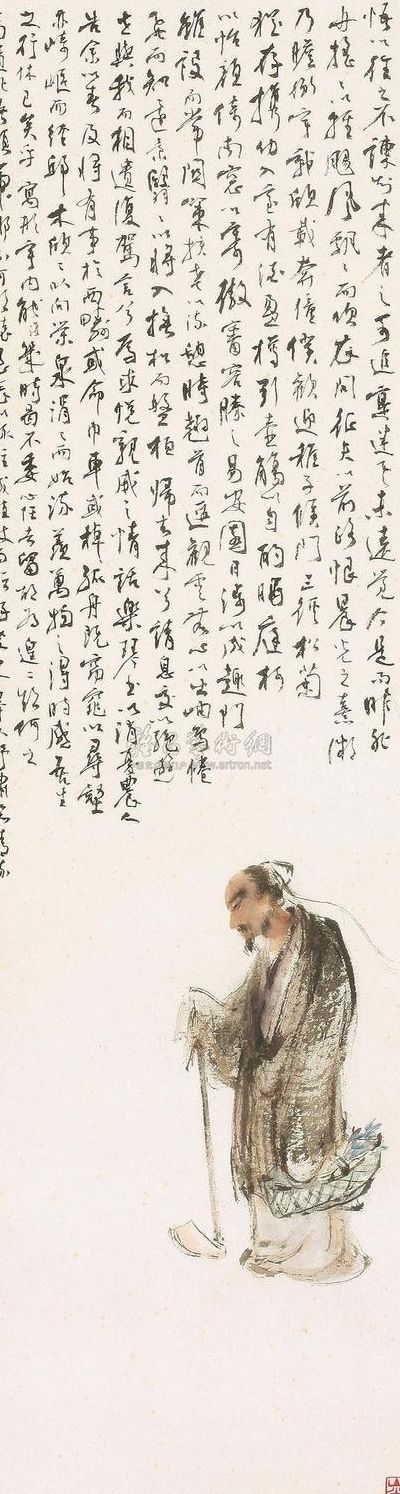 悟以往之不諫知來者之可追實迷途其未遠覺今是而昨非
舟搖搖以輕颺風飄飄而吹衣問征夫以前路恨晨光之熹微
乃瞻衡宇載欣載奔僮僕歡迎稚子候門三徑松菊
猶存攜幼入室有酒盈樽引壺觴以自酌眄庭柯
以怡顏倚南窗以寄傲審容膝之易安園日涉以成趣門
雖設而常關策扶老以流憩時翹首而遐觀雲無心以出岫鳥倦
飛而知還景翳翳以將入撫松而盤桓歸去來兮請息交以絕遊
世與我而相遺復駕言兮焉求悅親戚之情話樂琴書以消憂農人
告余以春及將有事於西疇或命巾車或棹孤舟既窈窕以尋壑
亦崎嶇而經邱木欣欣以向榮泉涓涓而始流羨萬物之得時感吾生
之行休已矣乎寓形宇內能復幾時曷不委心任去留胡為遑遑欲何之
www.artron.net